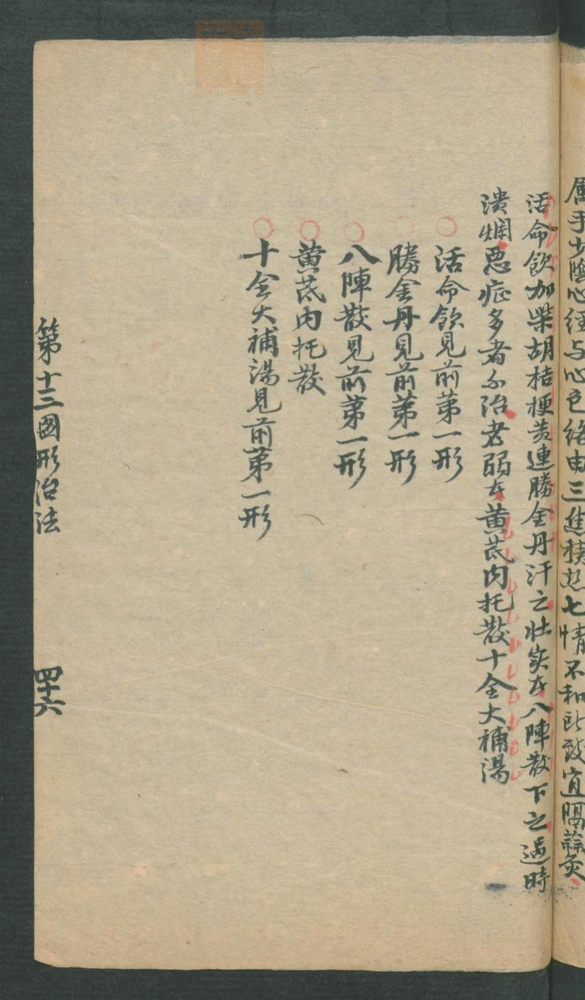 属手少陰心経与心包絡由三焦積热七情不和所致宜隔蒜灸
活命飲加柴胡桔梗黄連勝金丹汗之壮实者八陣散下之過時
潰爛惡症多者不治老弱者黄芪内托散十全大補湯
活命飲見前第一形
勝金丹見前第一形
八陣散見前第一形
黄芪内托散
十全大補湯見前第一形
第十三圖形治法
四十六